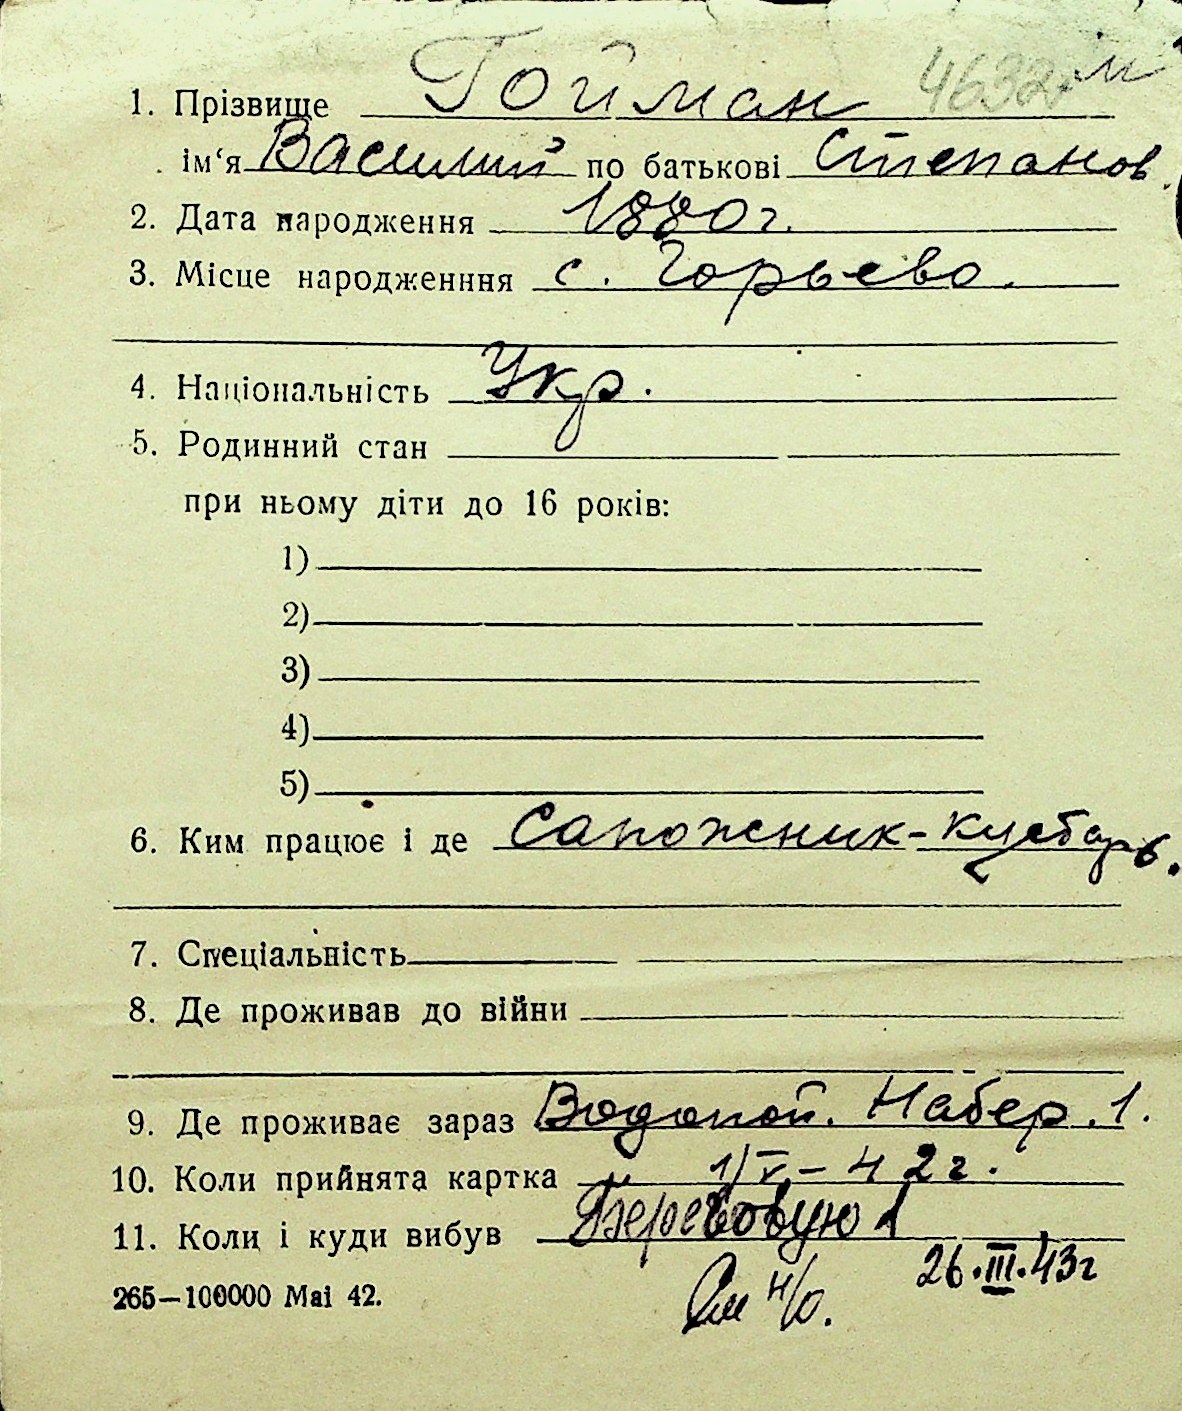 1. Прізвище Гойман 4632 м
ім‘я Василий по батькові Степанов.
2. Дата народження 1880 г.
3. Місце народженння с. Горьево.
4. Національність Укр.
5. Родинний стан
при ньому діти до 16 років:
1)
2)
3)
4)
5)
6. Ким працює і де Сапожник-кустарь.
7. Спеціальність
8. Де проживав до війни
9. Де проживає зараз Водопой. Набер. 1.
10. Коли прийнята картка 1/V-42 г.
11. Коли і куди вибув Береговую 1
26.III.43 г
265—100000 Mai 42. См н/о.